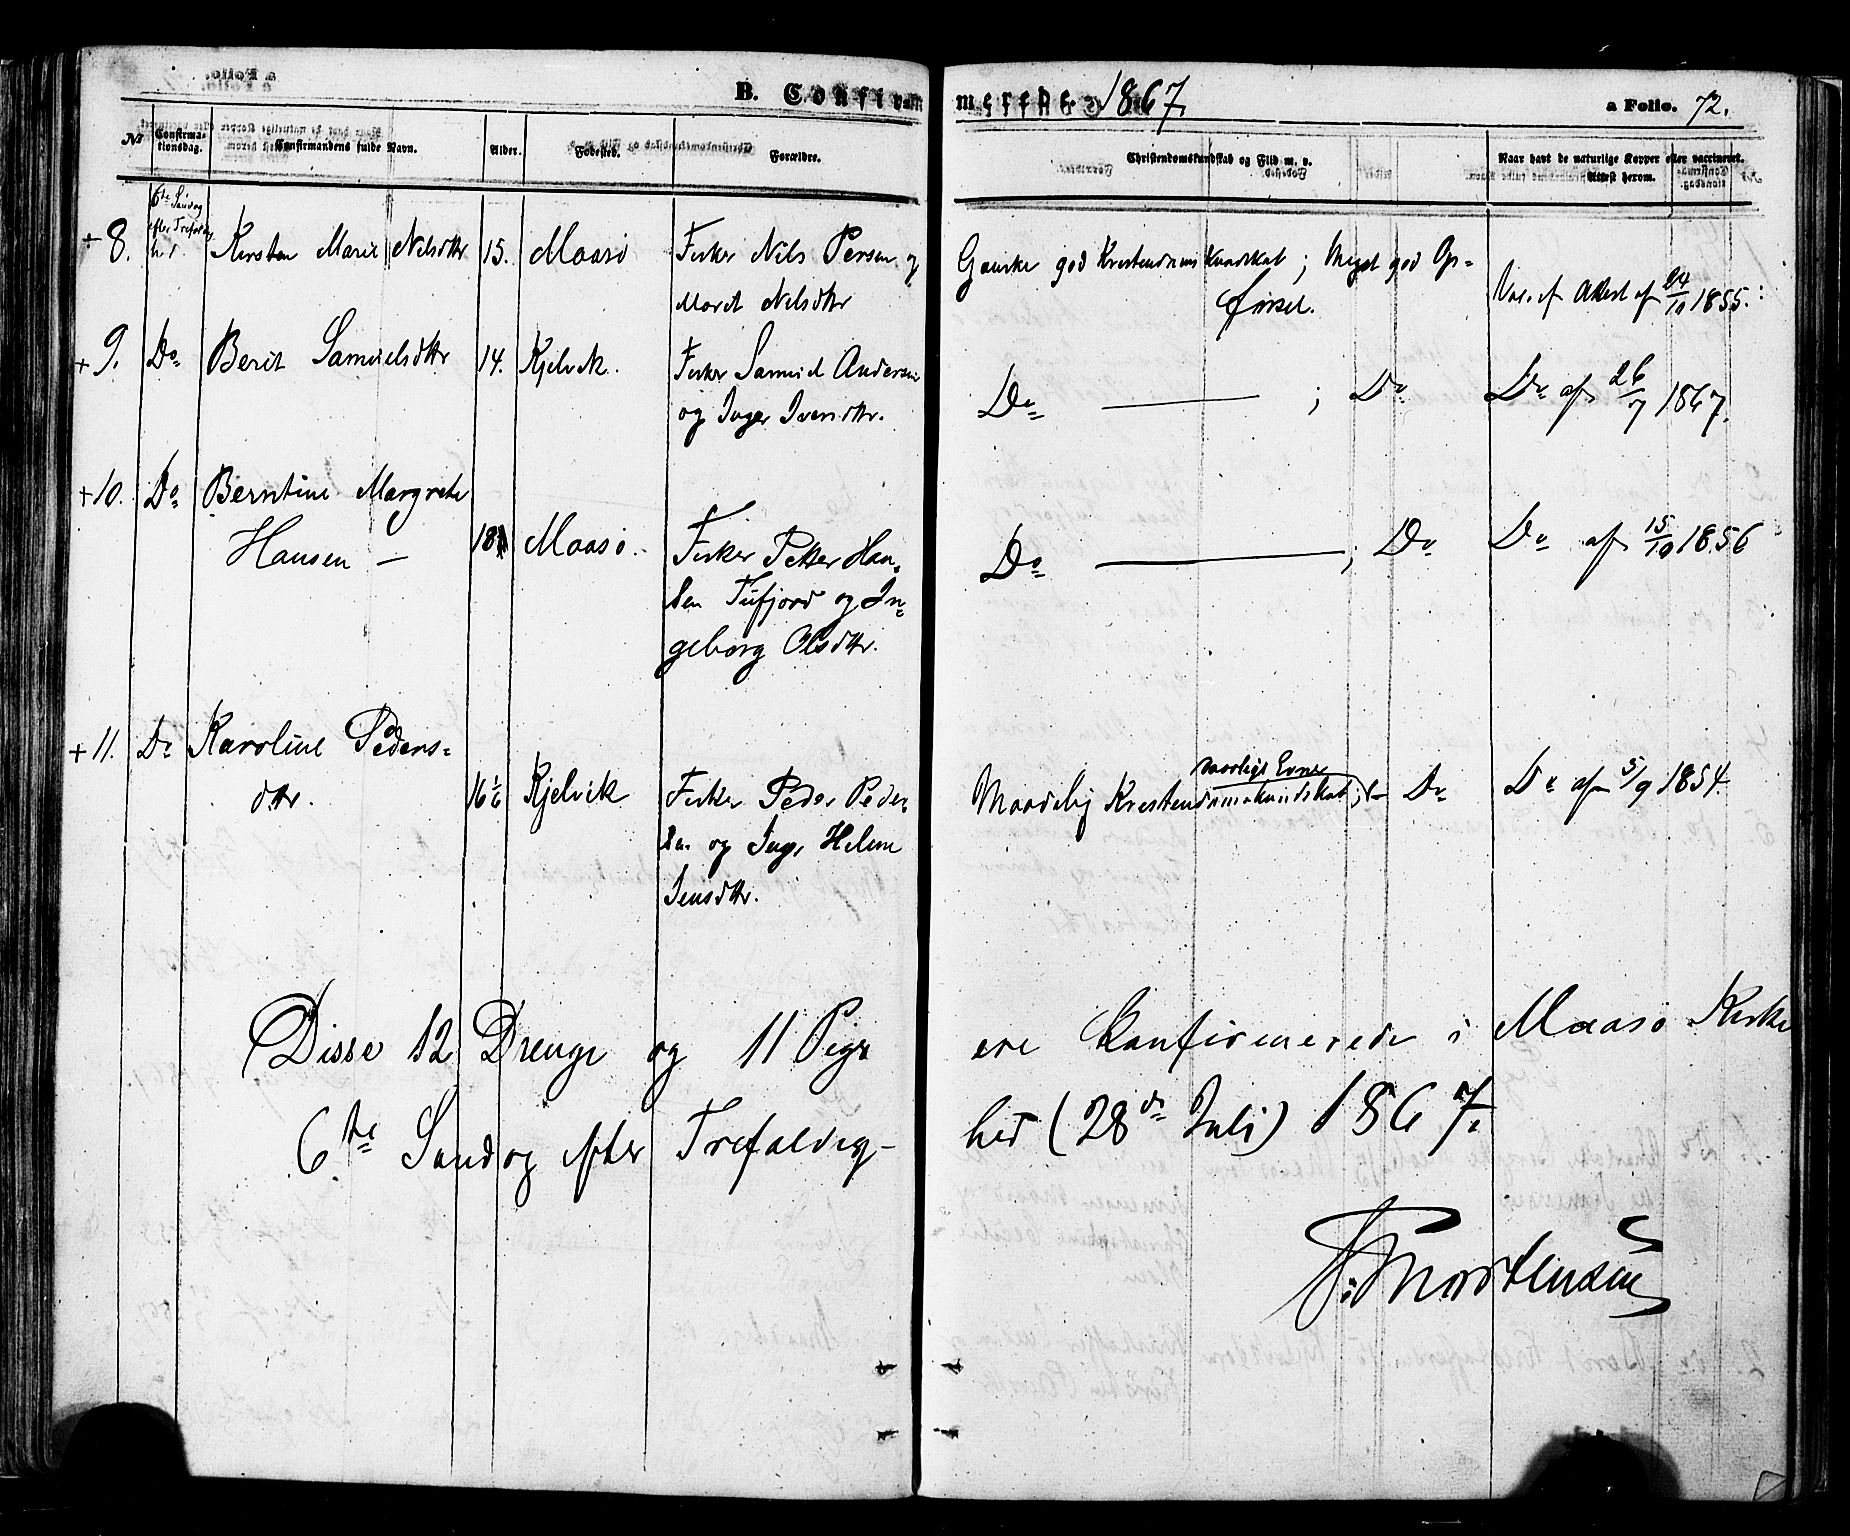 B. Confirmerede 1867. a Folio. 72.
No Confirmationsdag. Confirmandens fulde Navn. Alder. Fødested. Forældre. Christendomskundskab og Flid m. v. Naar havt de naturlige Kopper eller vaccineret. Attest herom.
6te Søndag
efter Trefoldig
hed.
+ 8. Kirsten Marie Nilsdttr 15. Maasø Fisker Nils Persen og
Marit Nilsdttr
Ganske god Kristendoms Kundskab; Meget god Op-
førsel.
Vac. ef Attest af 24/10 1855.
+ 9. Do Berit Samuelsdttr 14. Kjelvik. Fisker Samuel Andersen
og Inger Iversdttr.
Do ; Do Do af 26/7 1867.
+ 10. Do Berntine Margrete
Hansen — 18 Maasø. Fisker Petter Han-
sen Tufjord og In-
geborg Olsdttr.
Do ; Do Do af 15/10 1856
+ 11. Do Karoline Peders-
dttr. 16 1/6 Kjelvik Fisker Peder Peder-
sen og Inger Helene
Jensdttr.
svarlige Evner
Maadelig Kristendomskundskab; Do Do af 5/9 1854.
Disse 12 Drenge og 11 Piger ere Konfirmerede i Maasø Kirke
6te Søndag efter Trefoldig-hed (28de Juli) 1867.
Mortensen